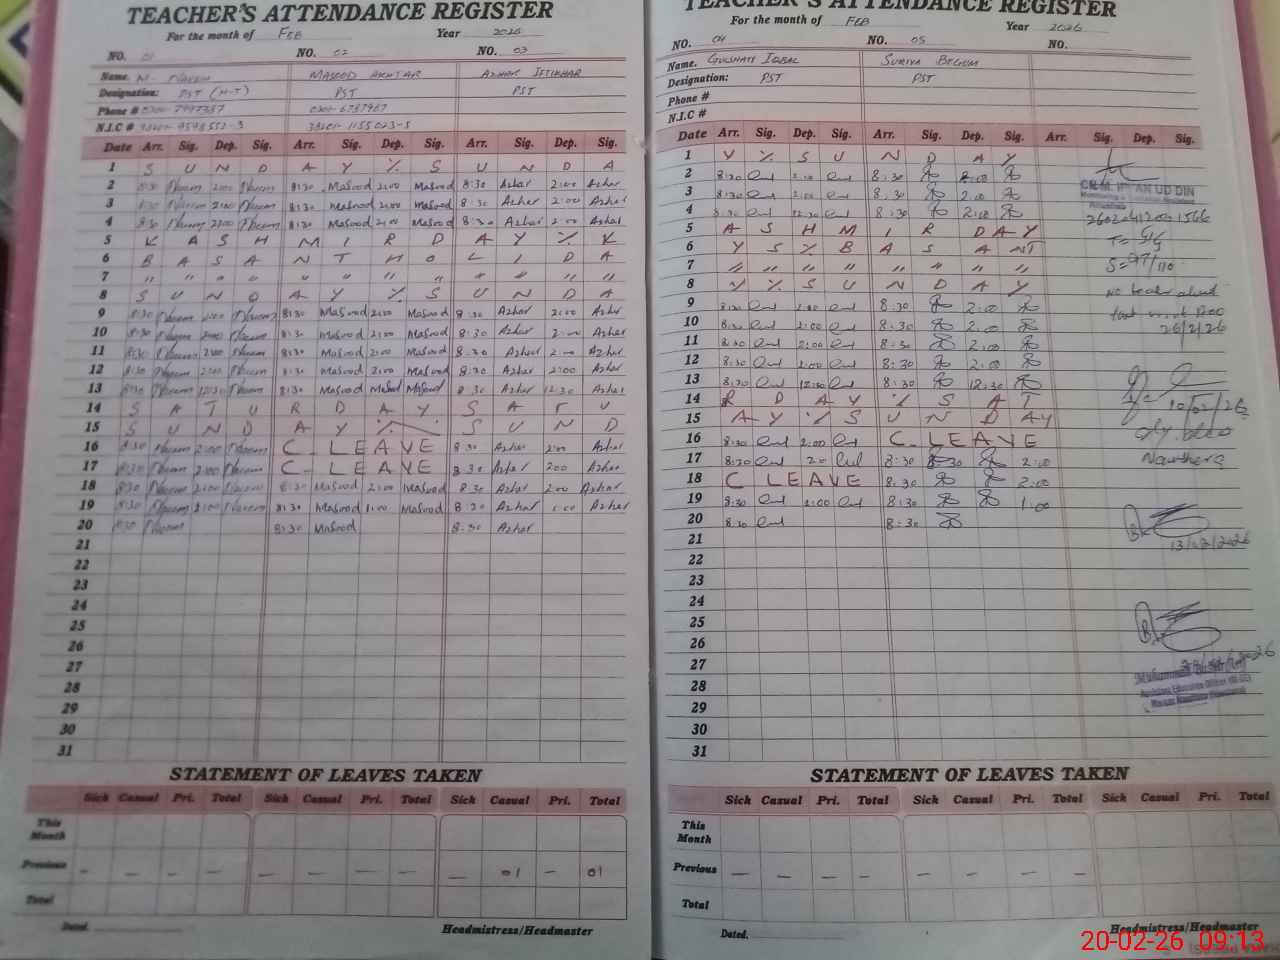 TEACHER'S ATTENDANCE REGISTER
For the month of FEB Year 2026
NO. 01 NO. 02 NO. 03
Name. MASOOD AKHTAR AZHAR IFTIKHAR
Designation: PST (H-T) PST PST
Phone #
N.I.C #
Date Arr. Sig. Dep. Sig. Arr. Sig. Dep. Sig. Arr. Sig. Dep. Sig.
1 S U N D A Y % S U N D A
2 8:30 Naeem 2:00 Naeem 8:30 Masood 2:00 Masood 8:30 Azhar 2:00 Azhar
3 8:30 Naeem 2:00 Naeem 8:30 Masood 2:00 Masood 8:30 Azhar 2:00 Azhar
4 8:30 Naeem 2:00 Naeem 8:30 Masood 2:00 Masood 8:30 Azhar 2:00 Azhar
5 K A S H M I R D A Y % K
6 B A S A N T H O L I D A
7 " " " " " " " " " " " "
8 S U N D A Y % S U N D A
9 8:30 Naeem 2:00 Naeem 8:30 Masood 2:00 Masood 8:30 Azhar 2:00 Azhar
10 8:30 Naeem 2:00 Naeem 8:30 Masood 2:00 Masood 8:30 Azhar 2:00 Azhar
11 8:30 Naeem 2:00 Naeem 8:30 Masood 2:00 Masood 8:30 Azhar 2:00 Azhar
12 8:30 Naeem 2:00 Naeem 8:30 Masood 2:00 Masood 8:30 Azhar 2:00 Azhar
13 8:30 Naeem 12:30 Naeem 8:30 Masood Masood Masood 8:30 Azhar 12:30 Azhar
14 S A T U R D A Y S A T U
15 S U N D A Y % S U N D
16 8:30 Naeem 2:00 Naeem C. LEAVE 8:30 Azhar 2:00 Azhar
17 8:30 Naeem 2:00 Naeem C. LEAVE 8:30 Azhar 2:00 Azhar
18 8:30 Naeem 2:00 Naeem 8:30 Masood 2:00 Masood 8:30 Azhar 2:00 Azhar
19 8:30 Naeem 2:00 Naeem 8:30 Masood 1:00 Masood 8:30 Azhar 1:00 Azhar
20 8:30 Naeem 8:30 Masood 8:30 Azhar
21
22
23
24
25
26
27
28
29
30
31
STATEMENT OF LEAVES TAKEN
Sick Casual Pri. Total Sick Casual Pri. Total Sick Casual Pri. Total
This Month
Previous - - - - - - - - - 01 - 01
Total
Dated.
Headmistress/Headmaster
TEACHER'S ATTENDANCE REGISTER
For the month of FEB Year 2026
NO. 04 NO. 05 NO.
Name. GULSHAN IQBAL SURIYA BEGUM
Designation: PST PST
Phone #
N.I.C #
Date Arr. Sig. Dep. Sig. Arr. Sig. Dep. Sig. Arr. Sig. Dep. Sig.
1 Y % S U N D A Y
2 8:30 2:00 8:30 2:00
3 8:30 2:00 8:30 2:00
4 8:30 8:30 2:00
5 A S H M I R D A Y
6 Y S % B A S A NT
7 " " " " " " " "
8 Y % S U N D A Y
9 8:30 2:00 8:30 2:00
10 8:30 2:00 8:30 2:00
11 8:30 2:00 8:30 2:00
12 8:30 2:00 8:30 2:00
13 8:30 12:30 8:30 12:30
14 R D A Y % S A T
15 A Y % S U N D AY
16 8:30 2:00 C. LEAVE
17 8:30 8:30 8:30 2:00
18 C LEAVE 8:30 2:00
19 8:30 2:00 8:30 1:00
20 8:30 8:30
21
22
23
24
25
26
27
28
29
30
31
T= 5/5
S= 97/110
26/2/26
10/02/26
Dy. DEO
Nowshera
13/02/2026
STATEMENT OF LEAVES TAKEN
Sick Casual Pri. Total Sick Casual Pri. Total Sick Casual Pri. Total
This Month
Previous - - - - - - - -
Total
Dated.
Headmistress/Headmaster
20-02-26 09:13